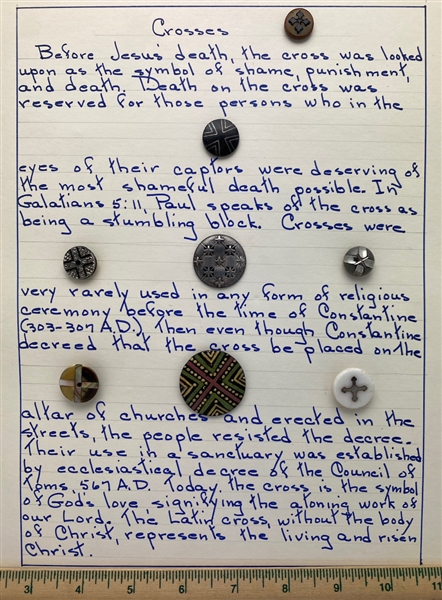 Crosses
Before Jesus' death, the cross was looked
upon as the symbol of shame, punishment,
and death. Death on the cross was
reserved for those persons who in the
eyes of their captors were deserving of
the most shameful death possible. In
Galatians 5:11, Paul speaks of the cross as
being a stumbling block. Crosses were
very rarely used in any form of religious
ceremony before the time of Constantine
(303-307 A.D.) Then even though Constantine
decreed that the cross be placed on the
altar of churches and erected in the
streets, the people resisted the decree.
Their use in a sanctuary was established
by ecclesiastical decree of the Council of
Toms 567 A.D. Today, the cross is the symbol
of God's love, signifying the atoning work of
our Lord. The Latin cross, without the body
of Christ, represents the living and risen
Christ.
3 4 5 6 7 8 9 10 11